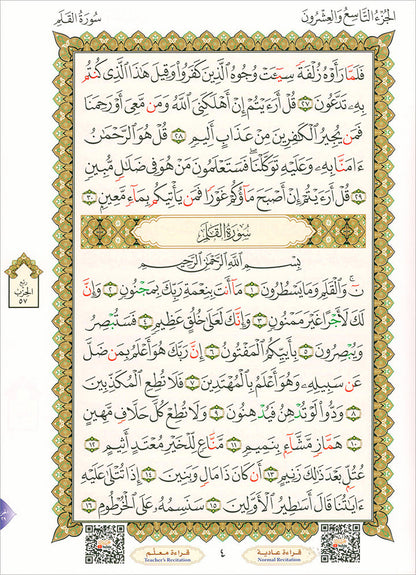 الجزء التاسع والعشرون
سورة القلم
فَلَمَّا رَأَوْهُ زُلْفَةً سِيٓـَٔتْ وُجُوهُ الَّذِينَ كَفَرُوا وَقِيلَ هَٰذَا الَّذِي كُنتُم
بِهِۦ تَدَّعُونَ ٢٧ قُلْ أَرَءَيْتُمْ إِنْ أَهْلَكَنِيَ اللَّهُ وَمَن مَّعِيَ أَوْ رَحِمَنَا
فَمَن يُجِيرُ الْكَٰفِرِينَ مِنْ عَذَابٍ أَلِيمٍ ٢٨ قُلْ هُوَ الرَّحْمَٰنُ
ءَامَنَّا بِهِۦ وَعَلَيْهِ تَوَكَّلْنَا ۖ فَسَتَعْلَمُونَ مَنْ هُوَ فِي ضَلَٰلٍ مُّبِينٍ
٢٩ قُلْ أَرَءَيْتُمْ إِنْ أَصْبَحَ مَآؤُكُمْ غَوْرًا فَمَن يَأْتِيكُم بِمَآءٍ مَّعِينٍ ٣٠
سُورَةُ الْقَلَمِ
بِسْمِ اللَّهِ الرَّحْمَٰنِ الرَّحِيمِ
نٓ ۚ وَالْقَلَمِ وَمَا يَسْطُرُونَ ١ مَآ أَنتَ بِنِعْمَةِ رَبِّكَ بِمَجْنُونٍ ٢ وَإِنَّ
لَكَ لَأَجْرًا غَيْرَ مَمْنُونٍ ٣ وَإِنَّكَ لَعَلَىٰ خُلُقٍ عَظِيمٍ ٤ فَسَتُبْصِرُ
وَيُبْصِرُونَ ٥ بِأَييِّكُمُ الْمَفْتُونُ ٦ إِنَّ رَبَّكَ هُوَ أَعْلَمُ بِمَن ضَلَّ
عَن سَبِيلِهِۦ وَهُوَ أَعْلَمُ بِالْمُهْتَدِينَ ٧ فَلَا تُطِعِ الْمُكَذِّبِينَ
٨ وَدُّوا لَوْ تُدْهِنُ فَيُدْهِنُونَ ٩ وَلَا تُطِعْ كُلَّ حَلَّافٍ مَّهِينٍ
١٠ هَمَّازٍ مَّشَّآءٍ بِنَمِيمٍ ١١ مَّنَّاعٍ لِّلْخَيْرِ مُعْتَدٍ أَثِيمٍ ١٢
عُتُلٍّ بَعْدَ ذَٰلِكَ زَنِيمٍ ١٣ أَن كَانَ ذَا مَالٍ وَبَنِينَ ١٤ إِذَا تُتْلَىٰ عَلَيْهِ
ءَايَٰتُنَا قَالَ أَسَٰطِيرُ الْأَوَّلِينَ ١٥ سَنَسِمُهُۥ عَلَى الْخُرْطُومِ ١٦
ربع
الحزب
٥٧
قراءة عادية
Normal Recitation
٤
قراءة معلم
Teacher's Recitation